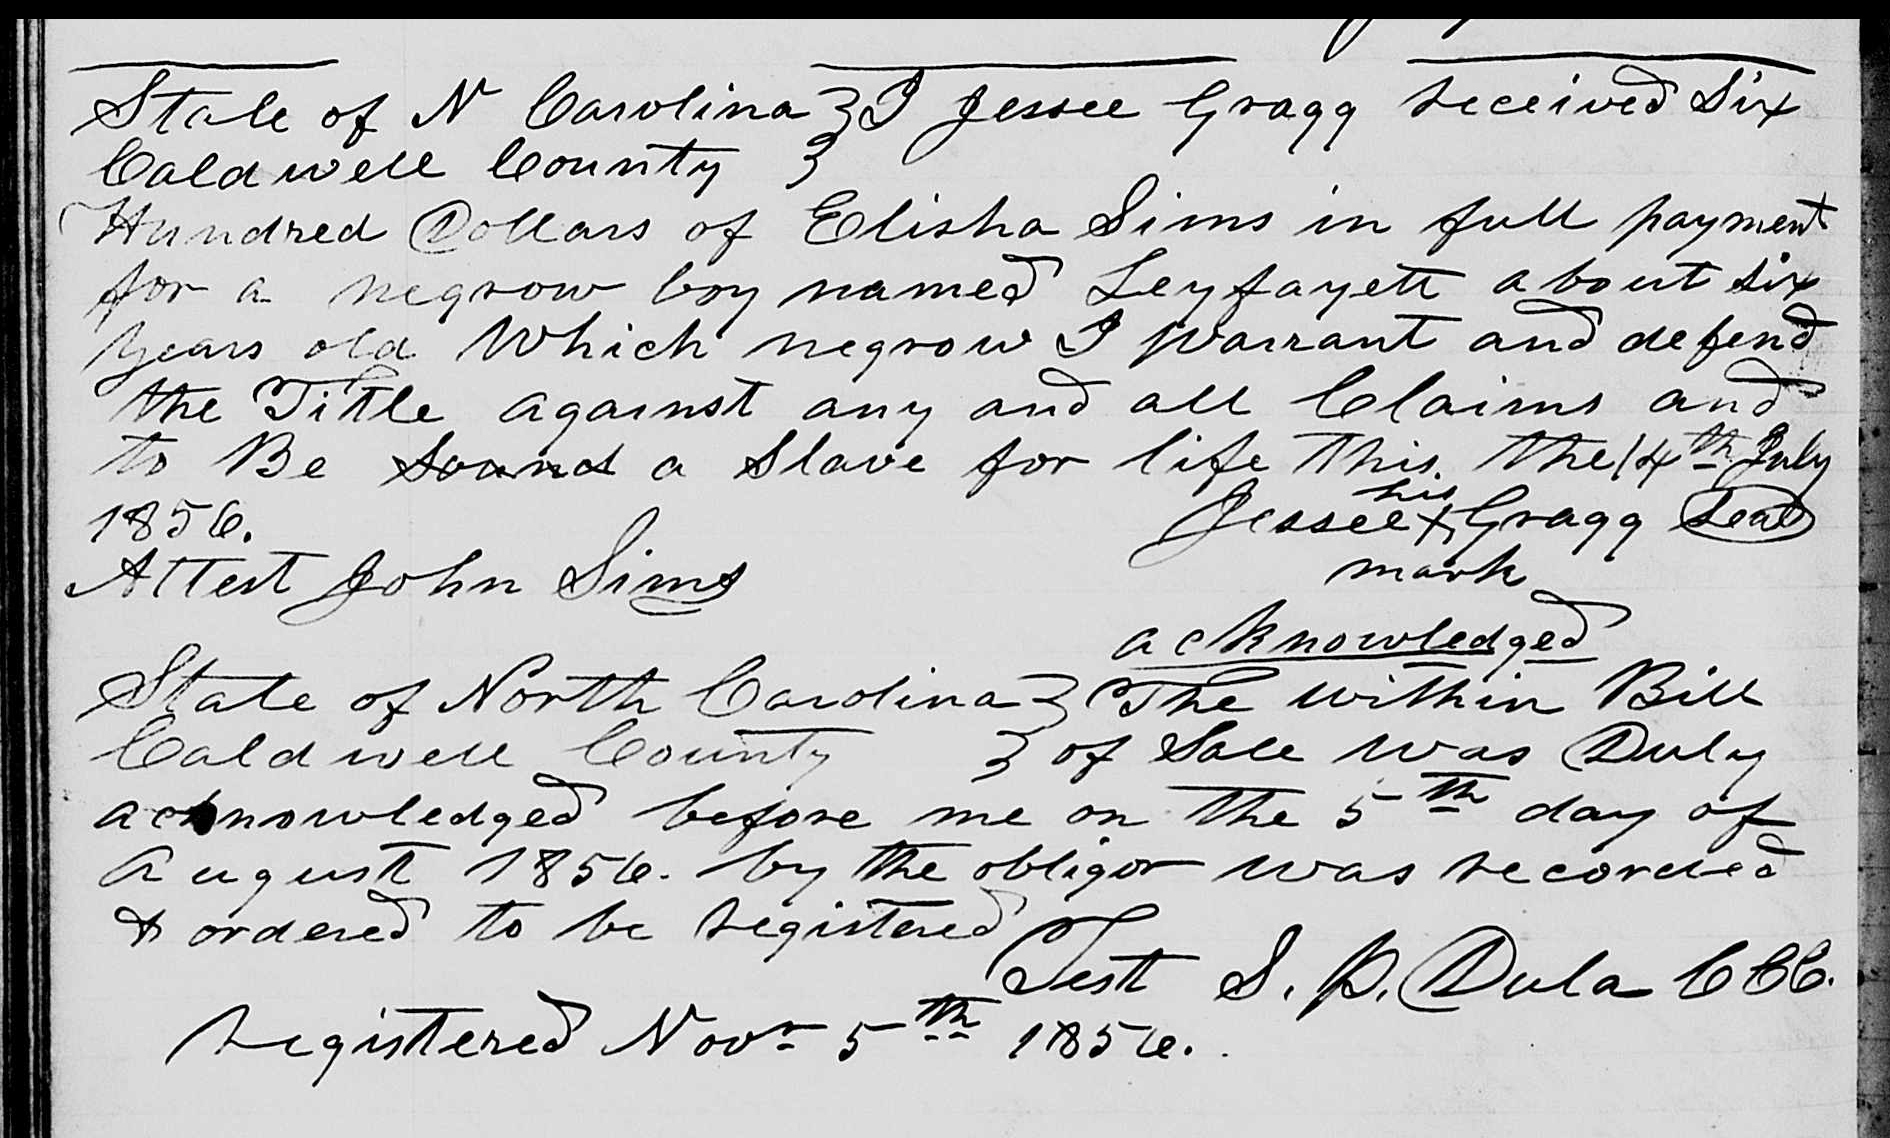 State of N Carolina } I Jessee Gragg received Six
Caldwell County }
Hundred Dollars of Elisha Sims in full payment
for a negrow boy named Leyfayett about six
years old Which negrow I Warrant and defend
the Title against any and all Claims and
to Be Sound a Slave for life this the 14th July
1856.
his
Jessee X Gragg Seal
mark
Attest John Sims
acknowledged
State of North Carolina } The within Bill
Caldwell County } of Sale was Duly
acknowledged before me on the 5th day of
August 1856. by the obligor was recorded
& ordered to be registered
Test S. P. Dula CCC.
registered Novr 5th 1856.